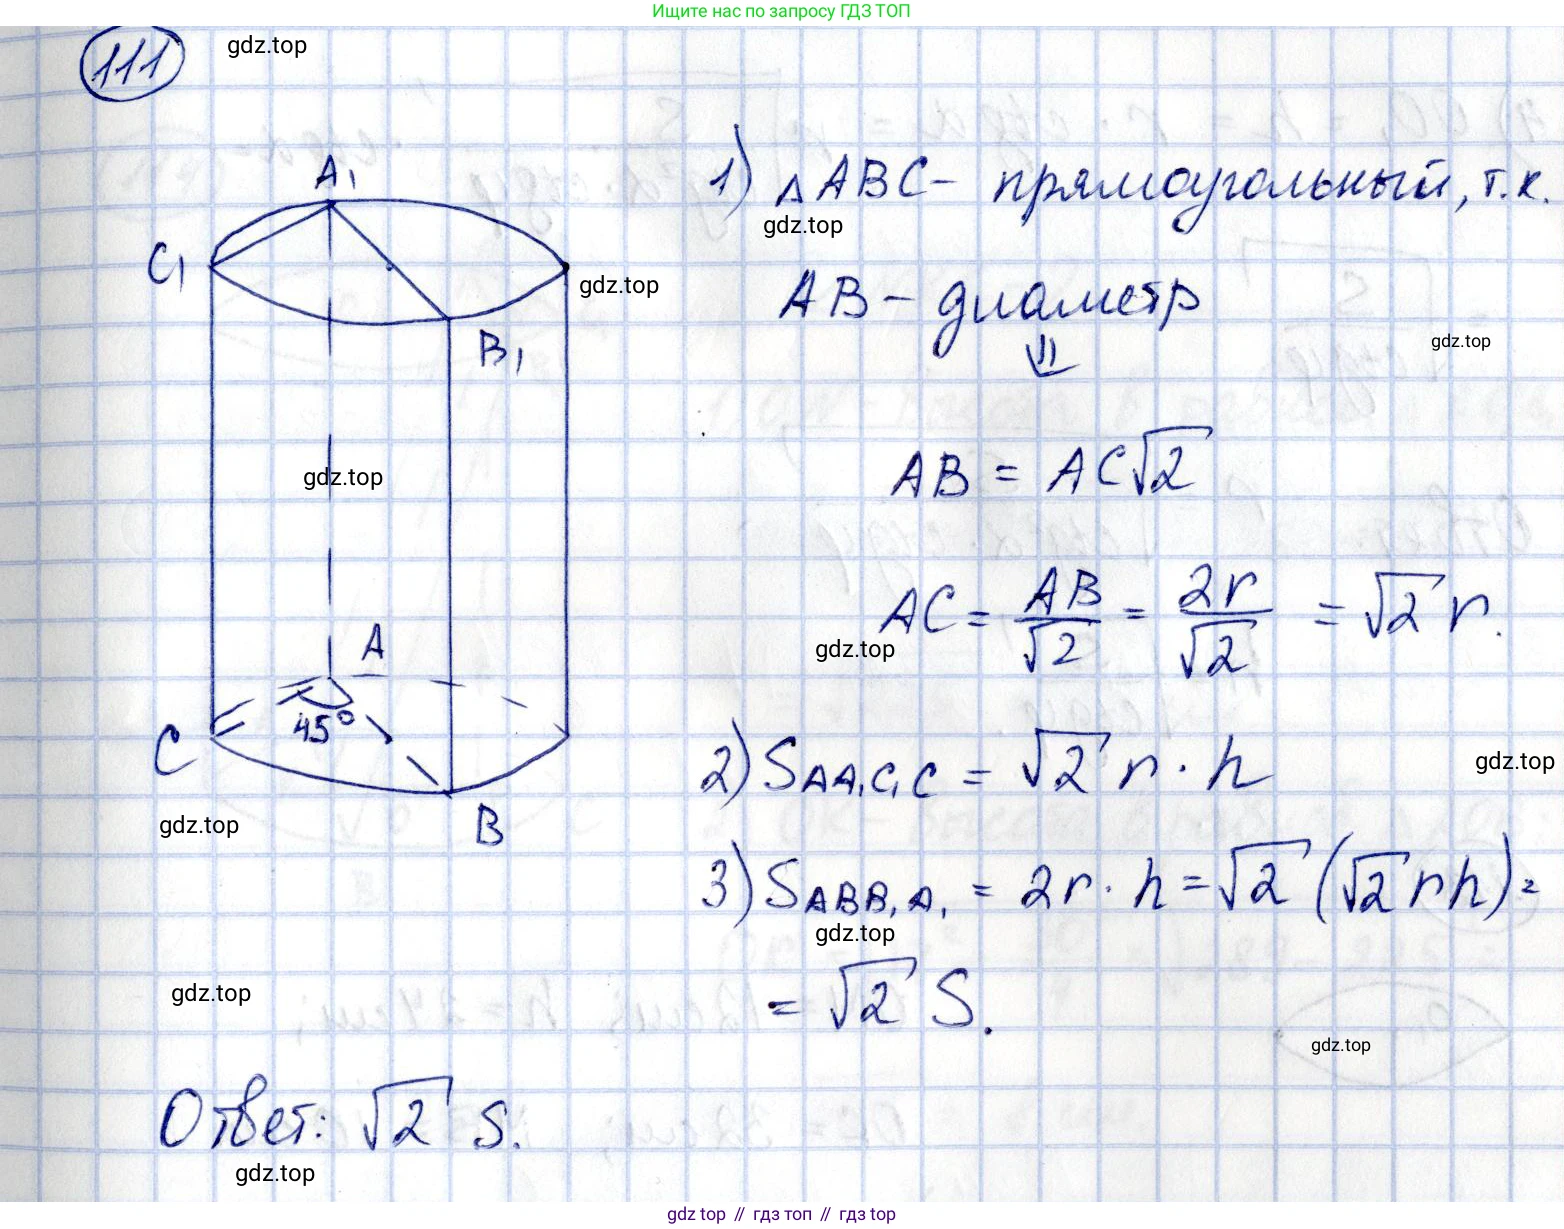 Ищите нас по запросу ГДЗ ТОП
111
gdz.top
A₁
C₁
B₁
gdz.top
gdz.top
A
45°
C
B
gdz.top
1) △ABC - прямоугольный, т.к.
gdz.top
AB - диаметр
gdz.top
⇓
AB = AC√2
AC = AB/√2 = 2r/√2 = √2 r.
gdz.top
2) S AA₁C₁C = √2 r · h
gdz.top
3) S ABB₁A₁ = 2r · h = √2 (√2 rh) =
gdz.top
= √2 S.
gdz.top
gdz.top
Ответ: √2 S.
gdz.top
gdz.top // гдз топ // гдз top